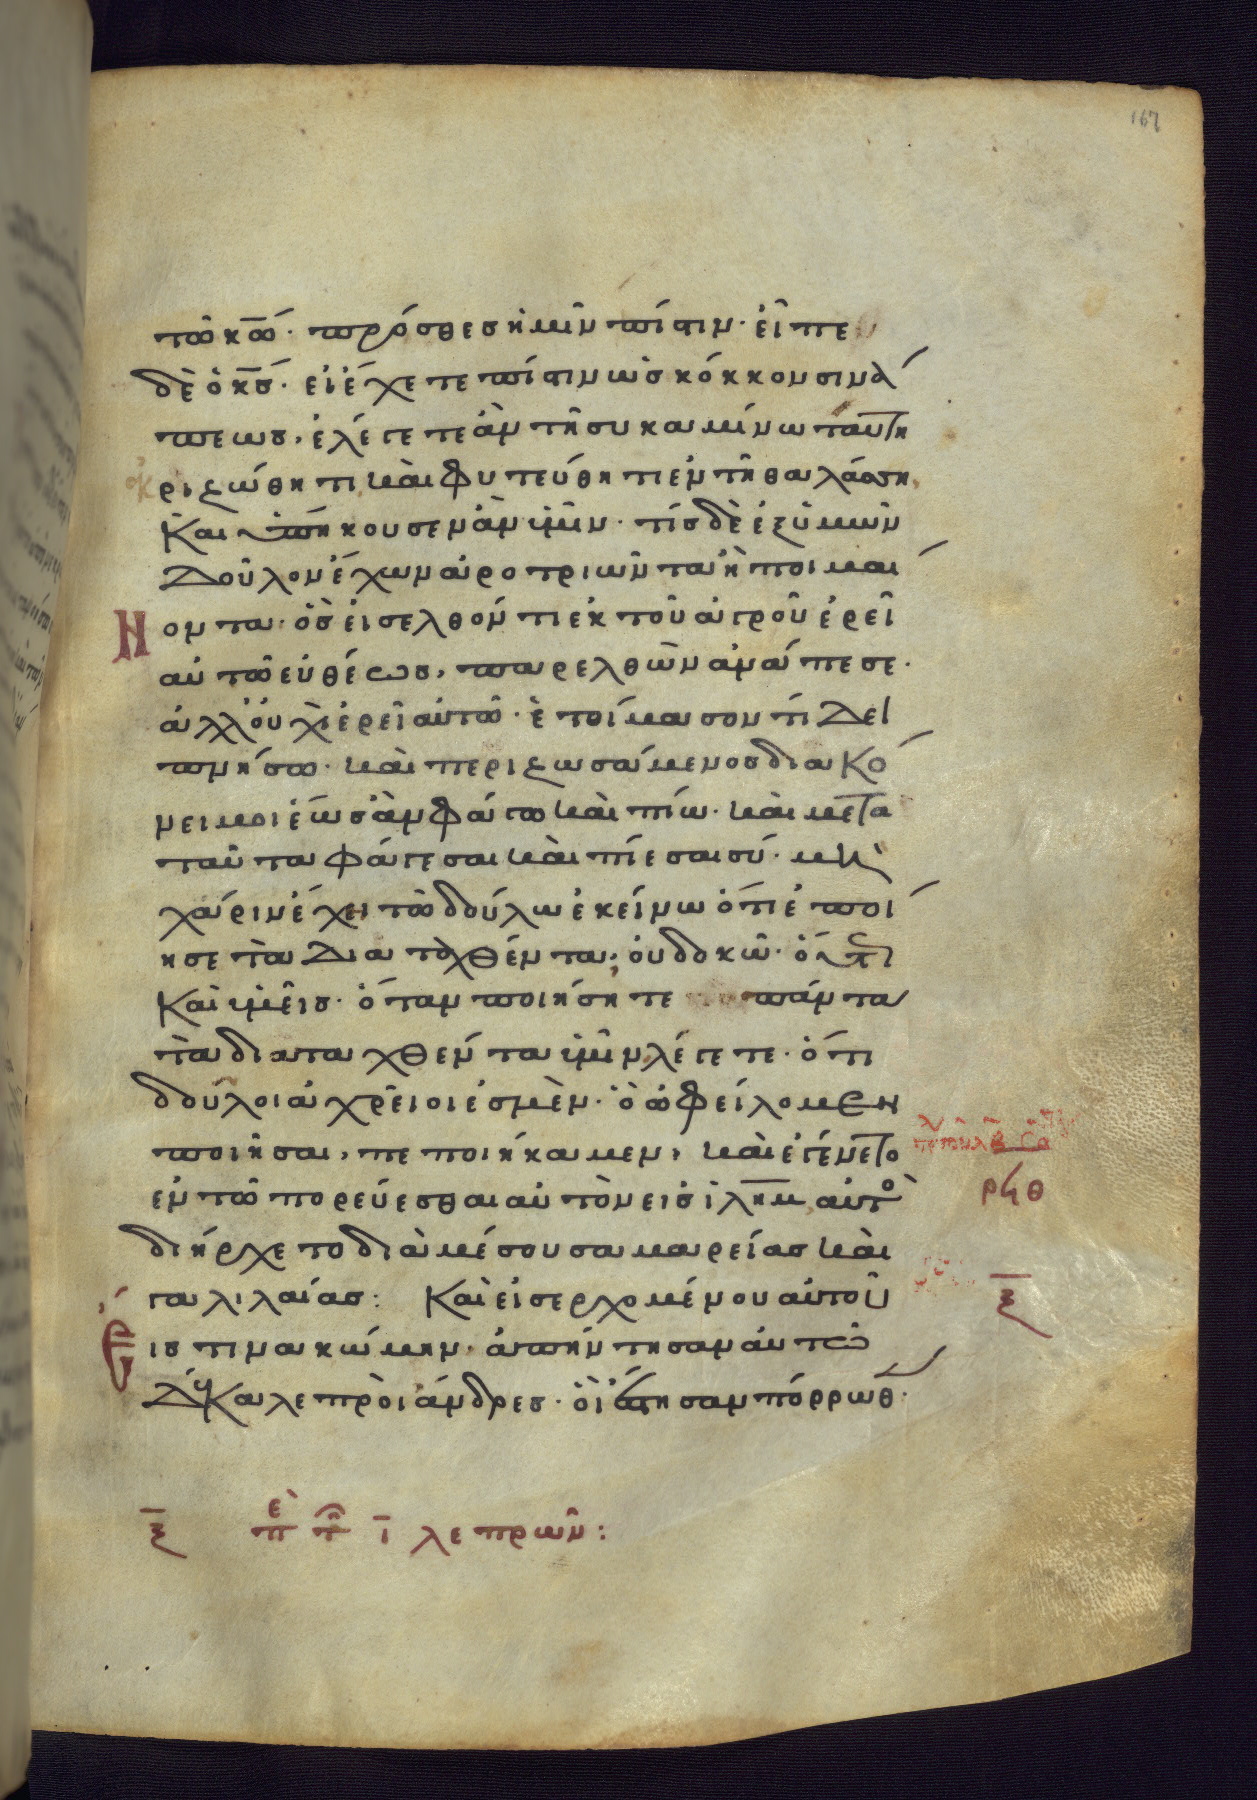 167
τῶ κ̅ω̅· πρόσθες ἡμῖν πίστιν· εἶπε
δὲ ὁ κ̅ς̅· εἰ ἔχετε πίστιν ὡς κόκκον σινά
πεως, ἐλέγετε ἂν τῆ συκαμίνω ταύτη
ριζώθητι, καὶ φυτεύθητι ἐν τῆ θαλάσση,
Καὶ ὑπήκουσεν ἂν ὑμῖν· τίς δὲ ἐξ ὑμῶν
Δοῦλον ἔχων ἀροτριῶντα ἢ ποιμαί
Νοντα· ὃς εἰσελθόντι ἐκ τοῦ ἀγροῦ ἐρεῖ
αὐτῶ εὐθέως, παρελθὼν ἀνάπεσε·
ἀλλ' οὐχὶ ἐρεῖ αὐτῶ· ἑτοίμασον τί Δει
πνήσω· καὶ περιζωσάμενος διακό
νει μοι ἕως ἂν φάγω καὶ πίω· καὶ μετα
ταῦτα φάγεσαι καὶ πίεσαι σύ· μὴ
χάριν ἔχει τῶ δούλω ἐκείνω ὅτι ἐποί
ησε τὰ Διαταχθέντα; οὐ δοκῶ· οὕτ
Καὶ ὑμεῖς· ὅταν ποιήσητε πάντα
τὰ διαταχθέντα ὑμῖν, λέγετε· ὅτι
δοῦλοι ἀχρεῖοι ἐσμὲν· ὃ ὀφείλομεν
ποιῆσαι, πεποιήκαμεν, καὶ ἐγένετο
ἐν τῶ πορεύεσθαι αὐτὸν εἰς ἰλ̅η̅μ̅ αὐτὸ
διήρχετο διὰ μέσου σαμαρείας καὶ
γαλιλαίας: Καὶ εἰσερχομένου αὐτοῦ
Εἴς τινα κώμην· ἀπήντησαν αὐτῶ
Δέκα λεπροὶ ἄνδρες· οἳ ἔστησαν πόρρωθ·
ρϟθ
ξ̅
ξ̅ πε πτ ι̅ λεπρῶν: